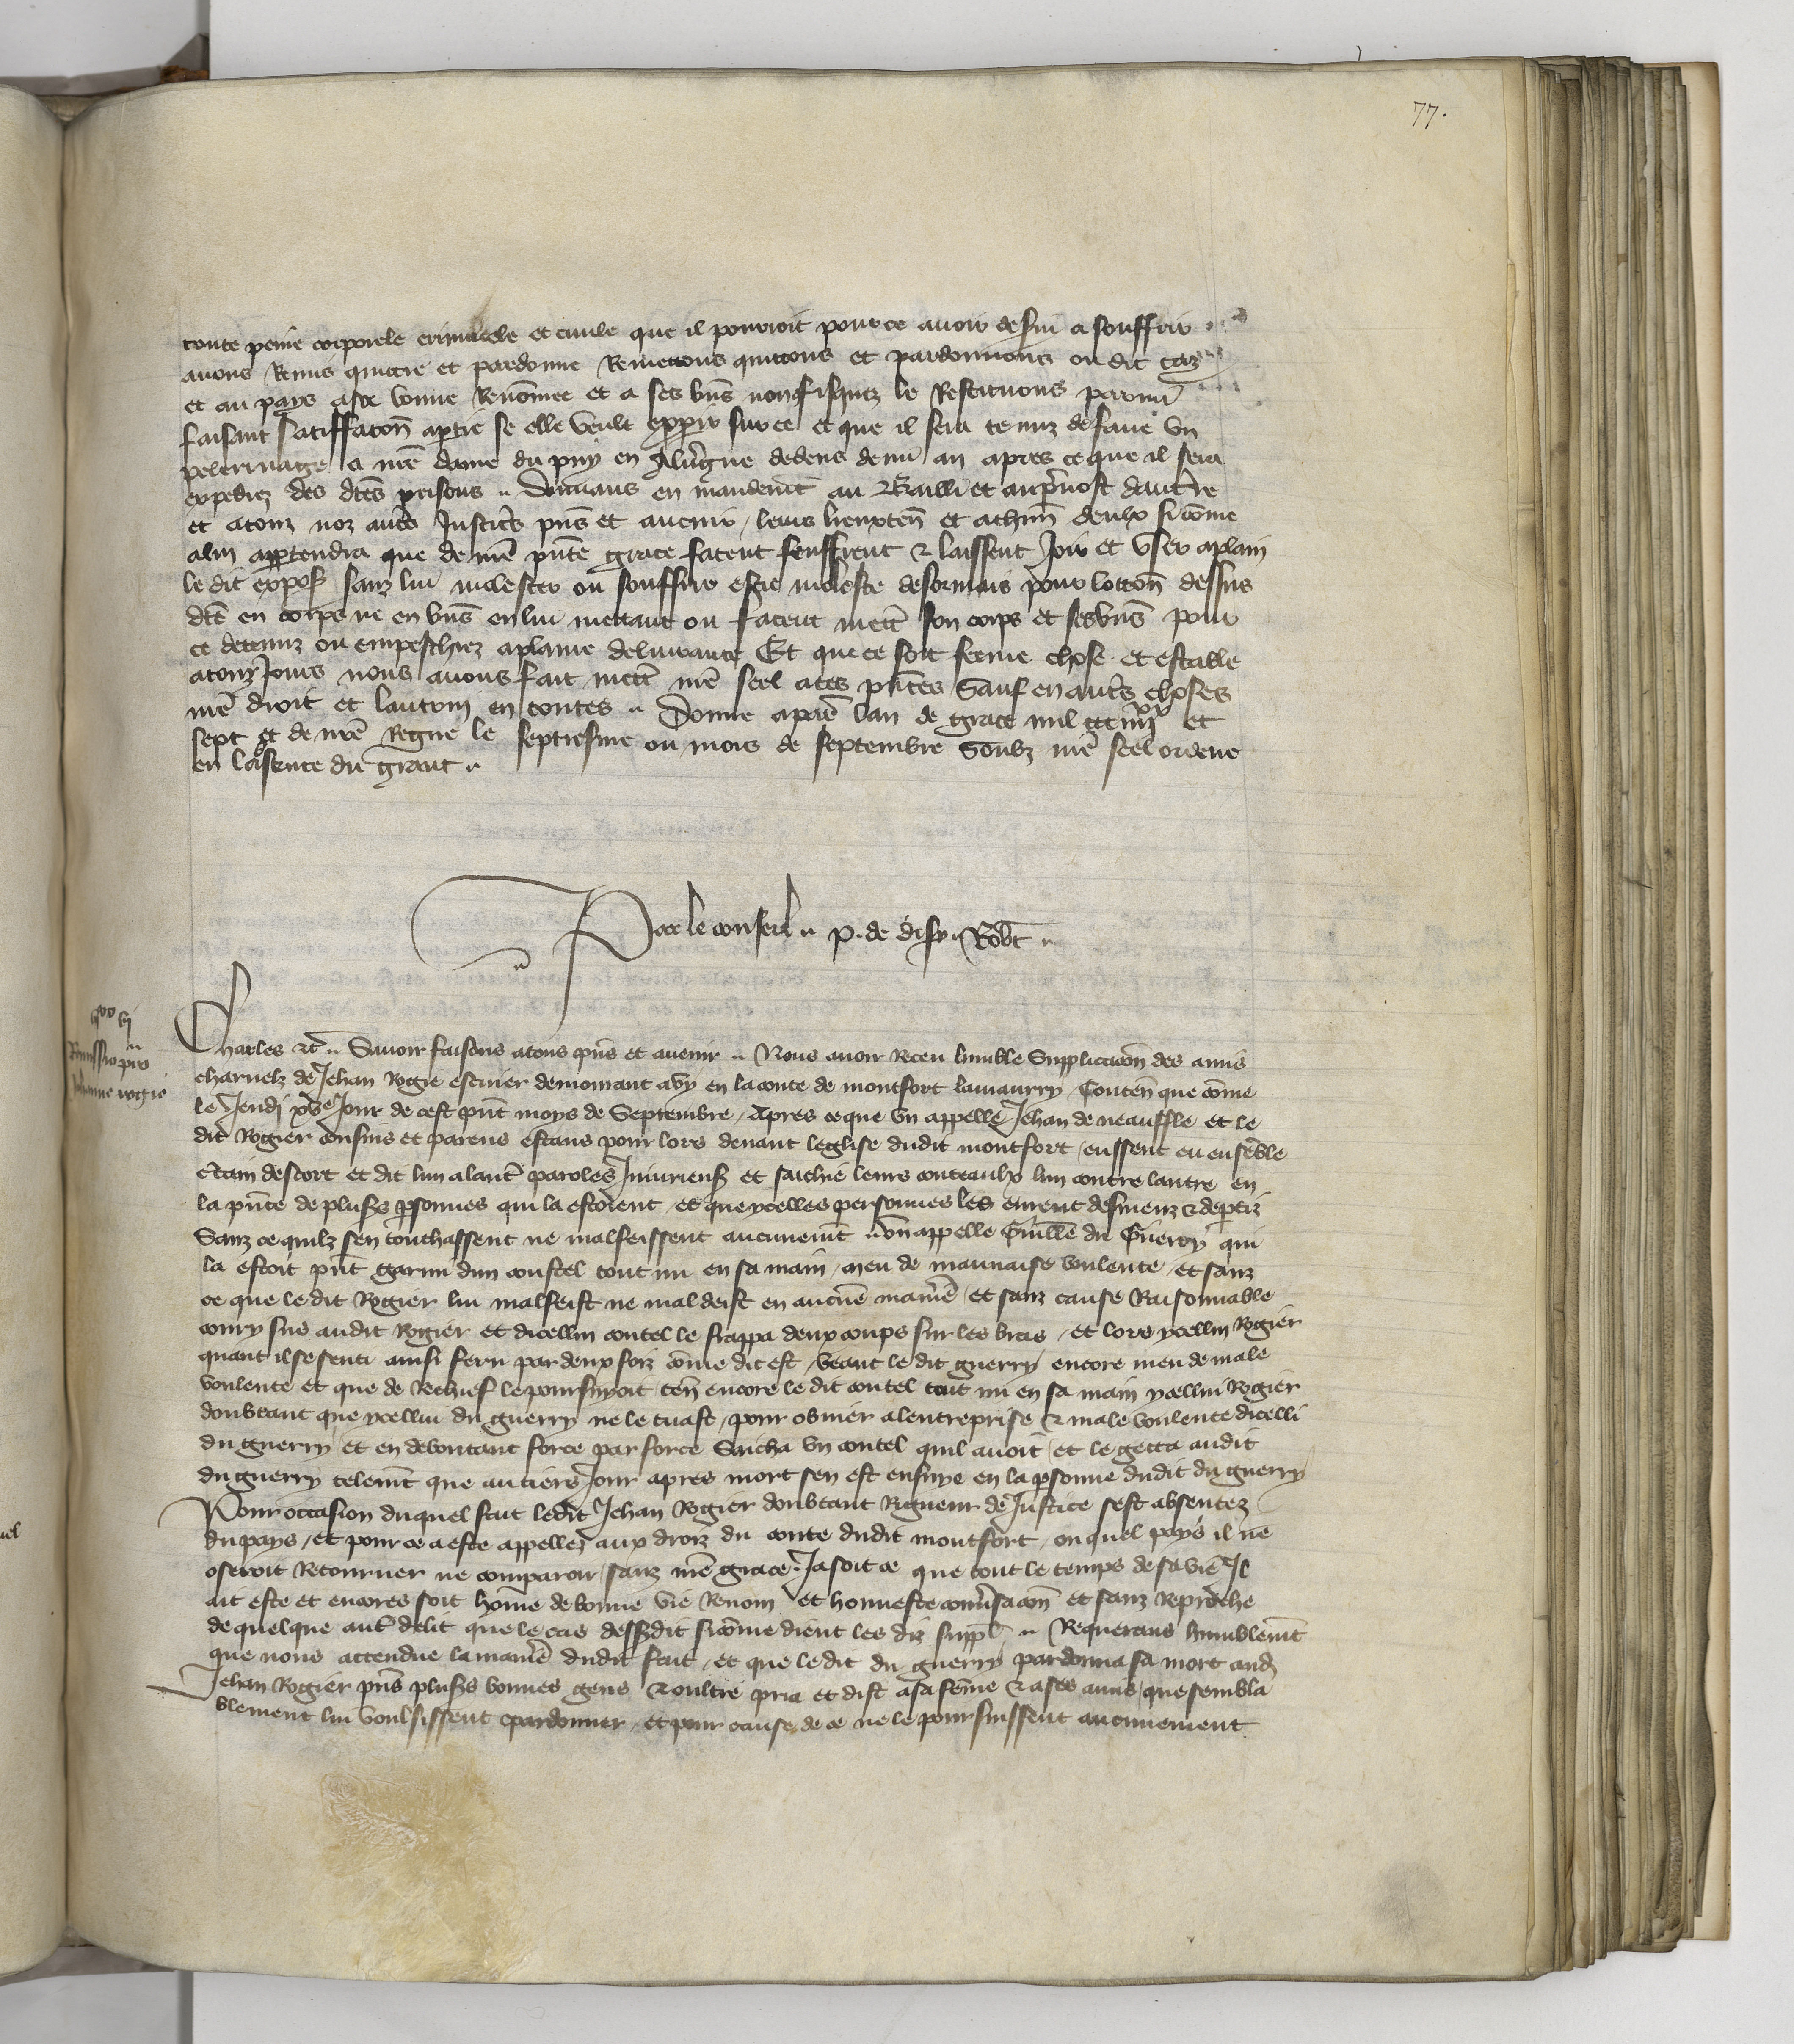 77.
toute peine corporele criminele et civile que il pourroit pour ce avoir desservi a souffrir
avons Remis quictie et pardonne Remettons quictons et pardonnons ou dit cas
et au pays a sa bonne Renōmee et a ses bn̄s non fisquez le Restituons parmi
faisant satiffacoñ a ptie se elle veult expoir sur ce et que il sera tenuz de faire un
pelerinage a nr̄e dame du puy en Aluergne dedens demi an apres ce que il sera
expediez des dc̄es prisons Donnans en mandemt̄ au Bailli et au p̄vost
et a touz noz aut̄s Justic̄s pn̄s et avenir leurs lieuxteñ et a chūn deulx si cōme
a lui apptendra que de nr̄e pn̄te grace facent seuffrent & laissent Joir et user a plain
le dit expos̄ sanz lui molester ou souffrir estre moleste desormais pour loccoñ dessus
dc̄e en corps ne en bn̄s en lui mettant ou facent mett̄ son corps et ses bn̄s pour
ce detenuz ou empeschiez a plaine delivrance Et que ce soit ferme chose et estable
a touz Jours nous avons fait mett̄ nr̄e seel a ces pn̄tes Sauf en aut̄s choses
nr̄e droit et lautruy en toutes Donne a paris lan de grace mil ccc iiii xx et
sept et de nr̄e Regne le septiesme ou mois de septembre Soubz nr̄e seel ordene
en labsence du grant
Par le conseil p. de disy Rob̄t
iiii xx vij
Remissio pro
Johanne rogier
Charles etc̄ Savoir faisons a tous pn̄s et avenir Nous avoir Receu humble Supplicacoñ des amis
charnelz de Jehan Rogie escuier demourant a by en la conte de montfort lamaurry Conteñ que cōme
le Jeudi xve Jour de cest pn̄t moys de Septembre Apres ce que un appelle Jehan de neauffle et le
dit Rogier cousins et parens estans pour lors devant leglise dudit montfort eussent eu ensēble
c̄tain descort et dit lun a laut̄ paroles Iniurieuses et sachie leurs couteaulx lun contre lautre en
la pn̄ce de plus̄s p̄sonnes qui la estoient et que ycelles personnes les eurent desmeuz & deptiz
Sanz ce quilz sen touchassent ne malfeissent aucunemt̄ un appelle Guill̄e du Guerry qui
la estoit pn̄t garni dun coustel tout nu en sa main meu de mauvaise voulente et sanz
ce que le dit Rogier lui malfeist ne maldeist en aucūne manīe et sanz cause Raisonnable
couru sus audit Rogier et dicellui coutel le frappa deux coups sur les bras et lors ycellui Rogier
quant il se senti ainsi feru par deux foiz cōme dit est veant le dit guerry encore meu de male
voulente et que de Rechief le poursuyoit teñ encore le dit coutel tout nu en sa main ycellui Rogier
doubtant que ycellui du guerry ne le tuast pour obvier a lentreprise & male voulente dicelli
du guerry et en deboutant force par force Sacha un coutel quil avoit et le getta audit
du guerry telemt̄ que au tiers Jour apres mort sen est ensuye en la p̄sonne dudit du guerry
Pour occasion duquel fait ledit Jehan Rogier doubtant Rigueur de Justice sest absentez
du pays et pour ce a este appellez aux droiz du conte dudit montfort ou quel pays il ne
oseroit Retourner ne comparoir sanz nr̄e grace Jasoit ce que tout le temps de sa vie Il
ait este et encores soit hōme de bonne vie Renom et honneste convsacoñ et sanz Reprōche
de quelque aut̄ delit que le cas dessusdit si cōme dient les diz suppl̄ Requerans humblemt̄
que nous attendue la manīe dudit fait et que le dit du guerry pardonna sa mort aud̄
Jehan Rogier pn̄s plus̄s bonnes gens & oultre pria et dist a sa fēme & a ses amis que sembla
blement lui voulsissent pardonner et pour cause de ce ne le poursuissent aucunement